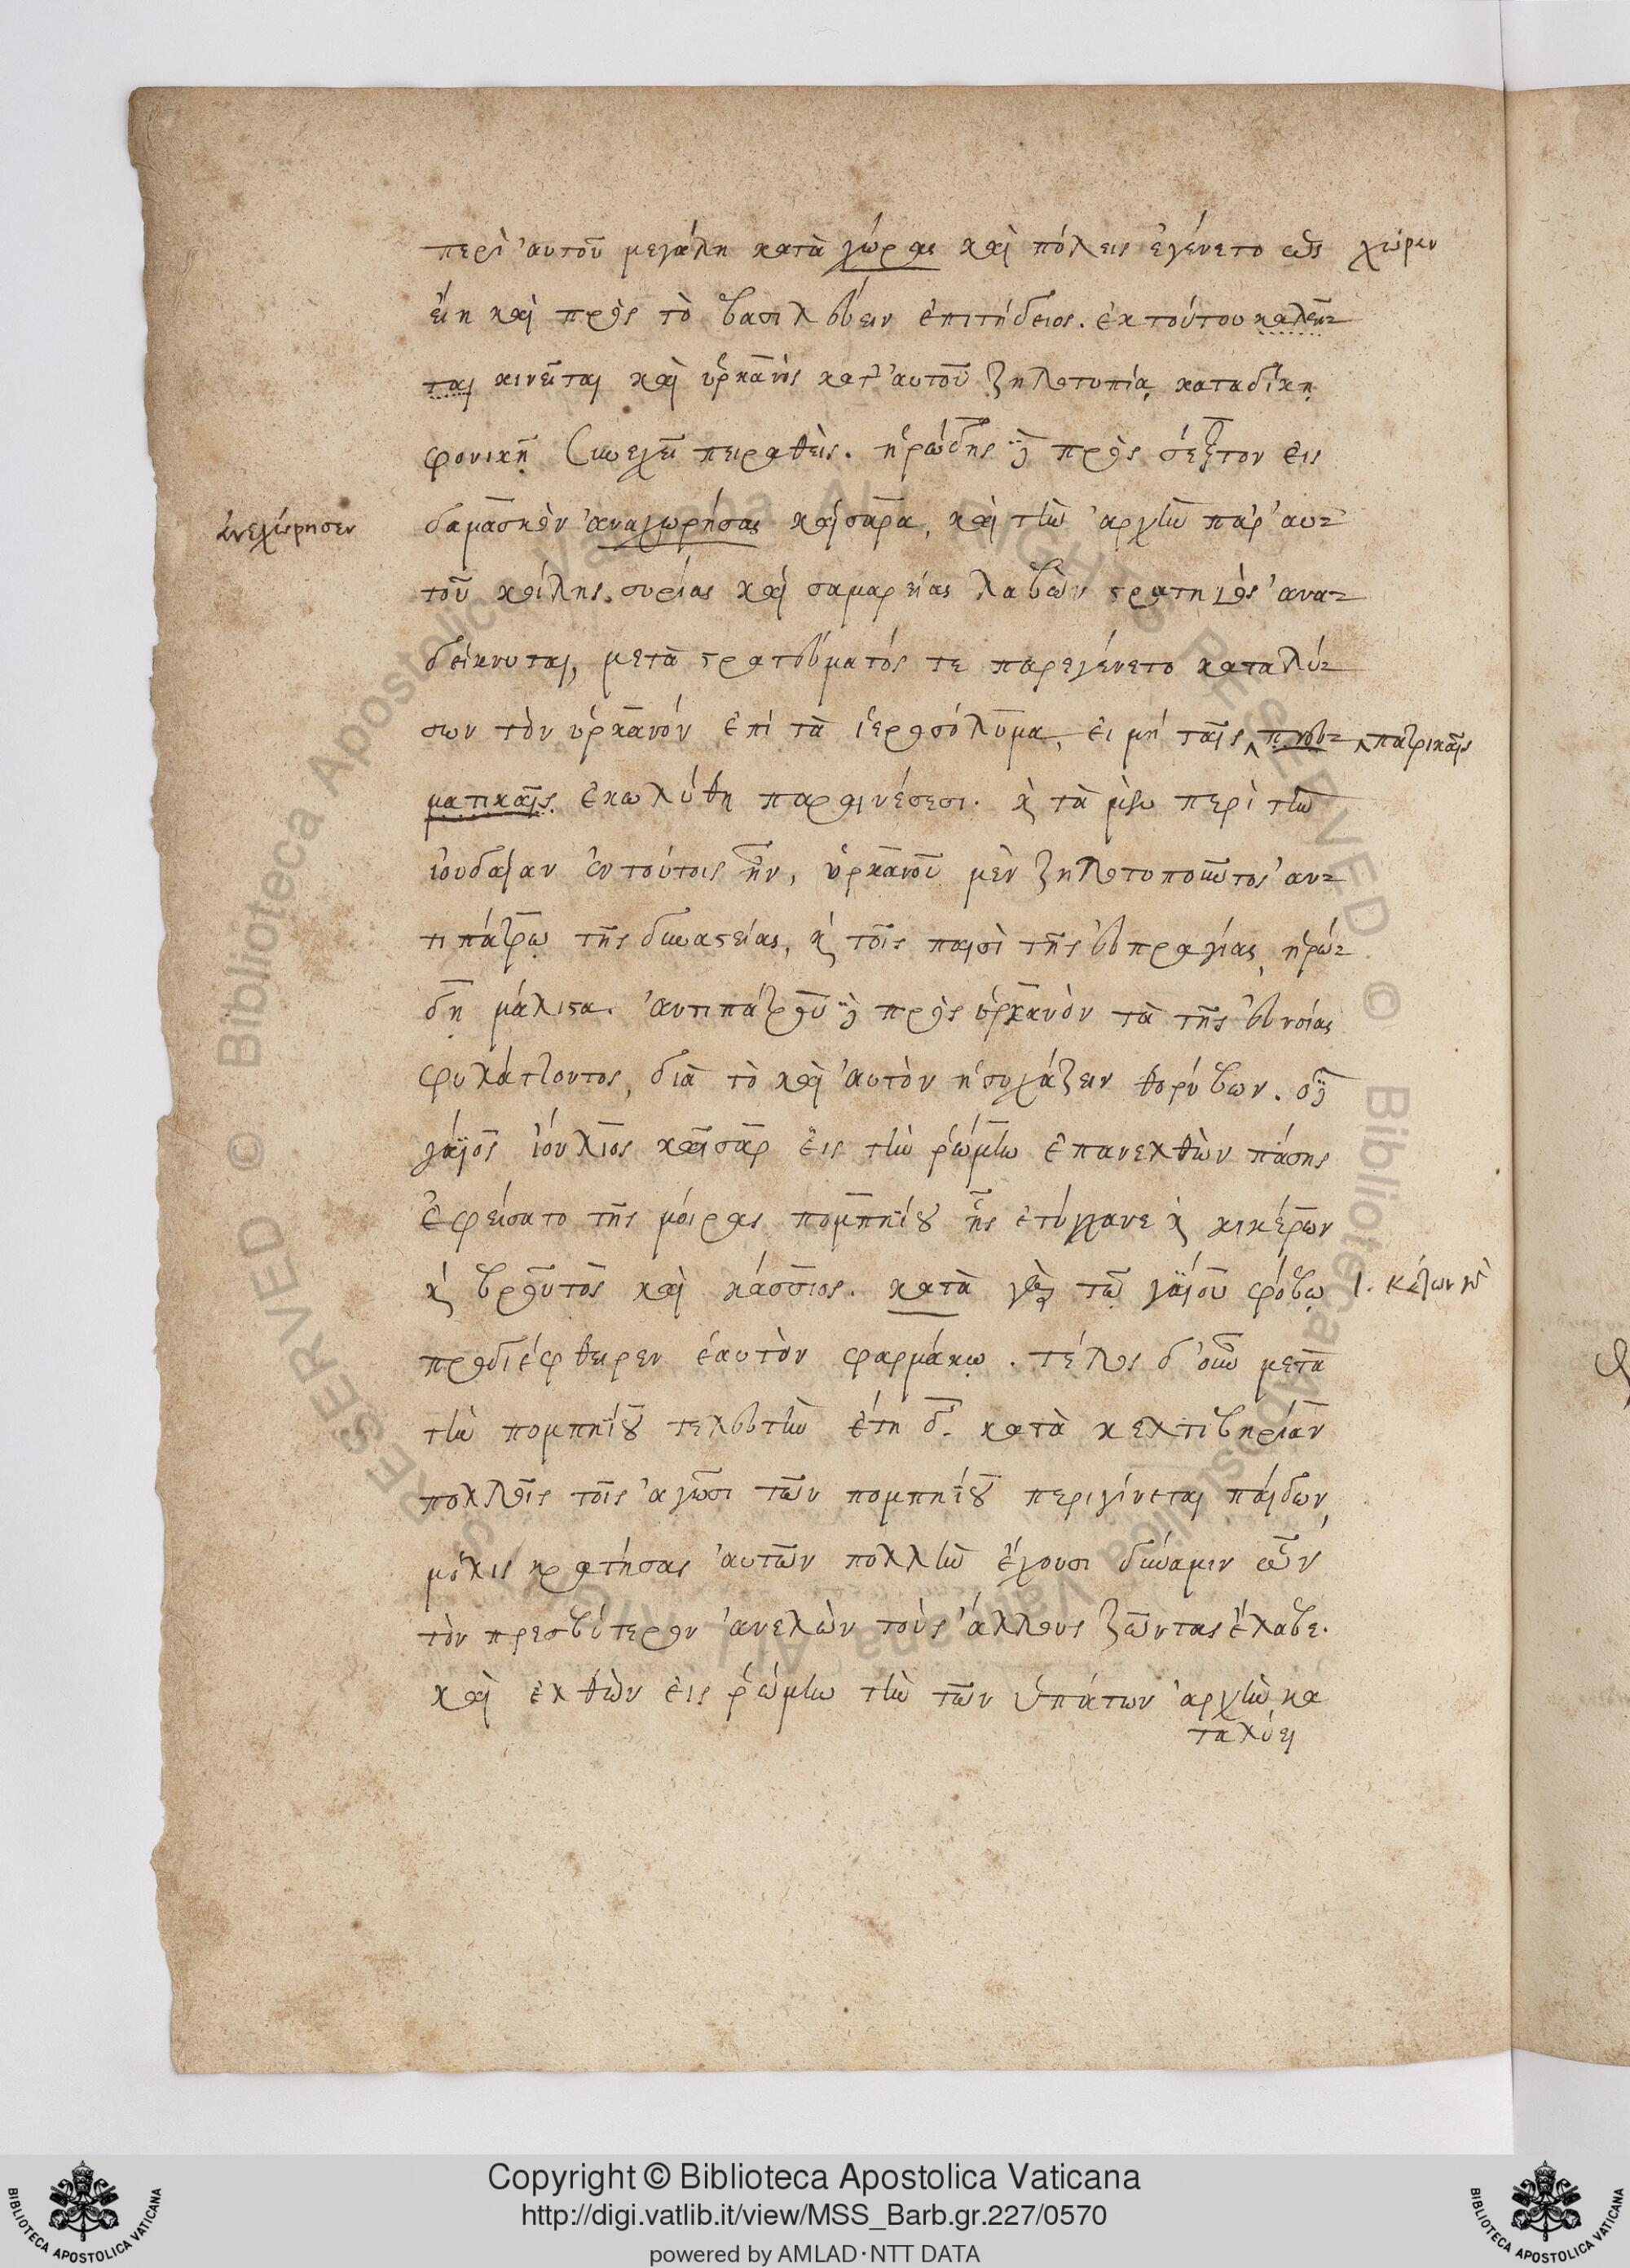 περὶ αὐτοῦ μεγάλη κατὰ χώρας καὶ πόλεις ἐγένετο ὡς χώραν
εἴη καὶ πρὸς τὸ βασιλεύειν ἐπιτήδειος. ἐκ τούτου καλεῖ-
ται κινεῖται καὶ ὑρκανὸς κατ' αὐτοῦ ζηλοτυπίᾳ, καταδίκῃ
φονικῇ συνεχεῖ πειραθεὶς. ἡρώδης δὲ πρὸς σέξτον εἰς
ἀνεχώρησεν δαμασκὸν ἀναχωρήσας καίσαρα, καὶ τὴν ἀρχὴν παρ' αυ-
τοῦ κοίλης συρίας καὶ σαμαρείας λαβὼν στρατηγὸς ἀνα-
δείκνυται, μετὰ στρατεύματός τε παρεγένετο καταλύ-
σων τὸν ὑρκανόν ἐπὶ τὰ ἱεροσόλυμα, εἰ μή ταῖς πνευ- πατρικαῖς
ματικαῖς ἐκωλύθη παραινέσεσι. καὶ τὰ μὲν περὶ τὴν
ἰουδαίαν ἐν τούτοις ἦν, ὑρκανοῦ μὲν ζηλοτυποῦντος ἀν-
τιπάτρῳ τῆς δυναστείας, καὶ τοῖς παισὶ τῆς εὐπραγίας, ἡρώ-
δῃ μάλιστα. ἀντιπάτρου δὲ πρὸς ὑρκανὸν τὰ τῆς εὐνοίας
φυλάττοντος, διὰ τὸ καὶ αὐτὸν ἡσυχάζειν θορύβων. ὁ δὲ
γάϊος ἰούλιος καῖσαρ εἰς τὴν ῥώμην ἐπανελθὼν πάσης
ἐφείσατο τῆς μοίρας πομπηΐου ἧς ἐτύγχανε καὶ κικέρων
καὶ βροῦτος καὶ κάσσιος. κατὰ γὰρ τῷ γαΐου φόβῳ l. Κάτων
προδιέφθειρεν ἑαυτὸν φαρμάκῳ. τέλος δ' οὖν μετὰ
τὴν πομπηΐου τελευτὴν ἔτη δ. κατὰ κελτιβηρίαν
πολλοῖς τοῖς ἀγῶσι τῶν πομπηΐου περιγίνεται παίδων,
μόλις κρατήσας αὐτῶν πολλὴν ἔχουσι δύναμιν ὧν
τὸν πρεσβύτερον ἀνελὼν τοὺς ἄλλους ζῶντας ἔλαβε.
καὶ ἐλθὼν εἰς ῥώμην τὴν τῶν ὑπάτων ἀρχὴν κα
ταλύει
Copyright © Biblioteca Apostolica Vaticana
http://digi.vatlib.it/view/MSS_Barb.gr.227/0570
powered by AMLAD·NTT DATA
BIBLIOTECA APOSTOLICA VATICANA
BIBLIOTECA APOSTOLICA VATICANA